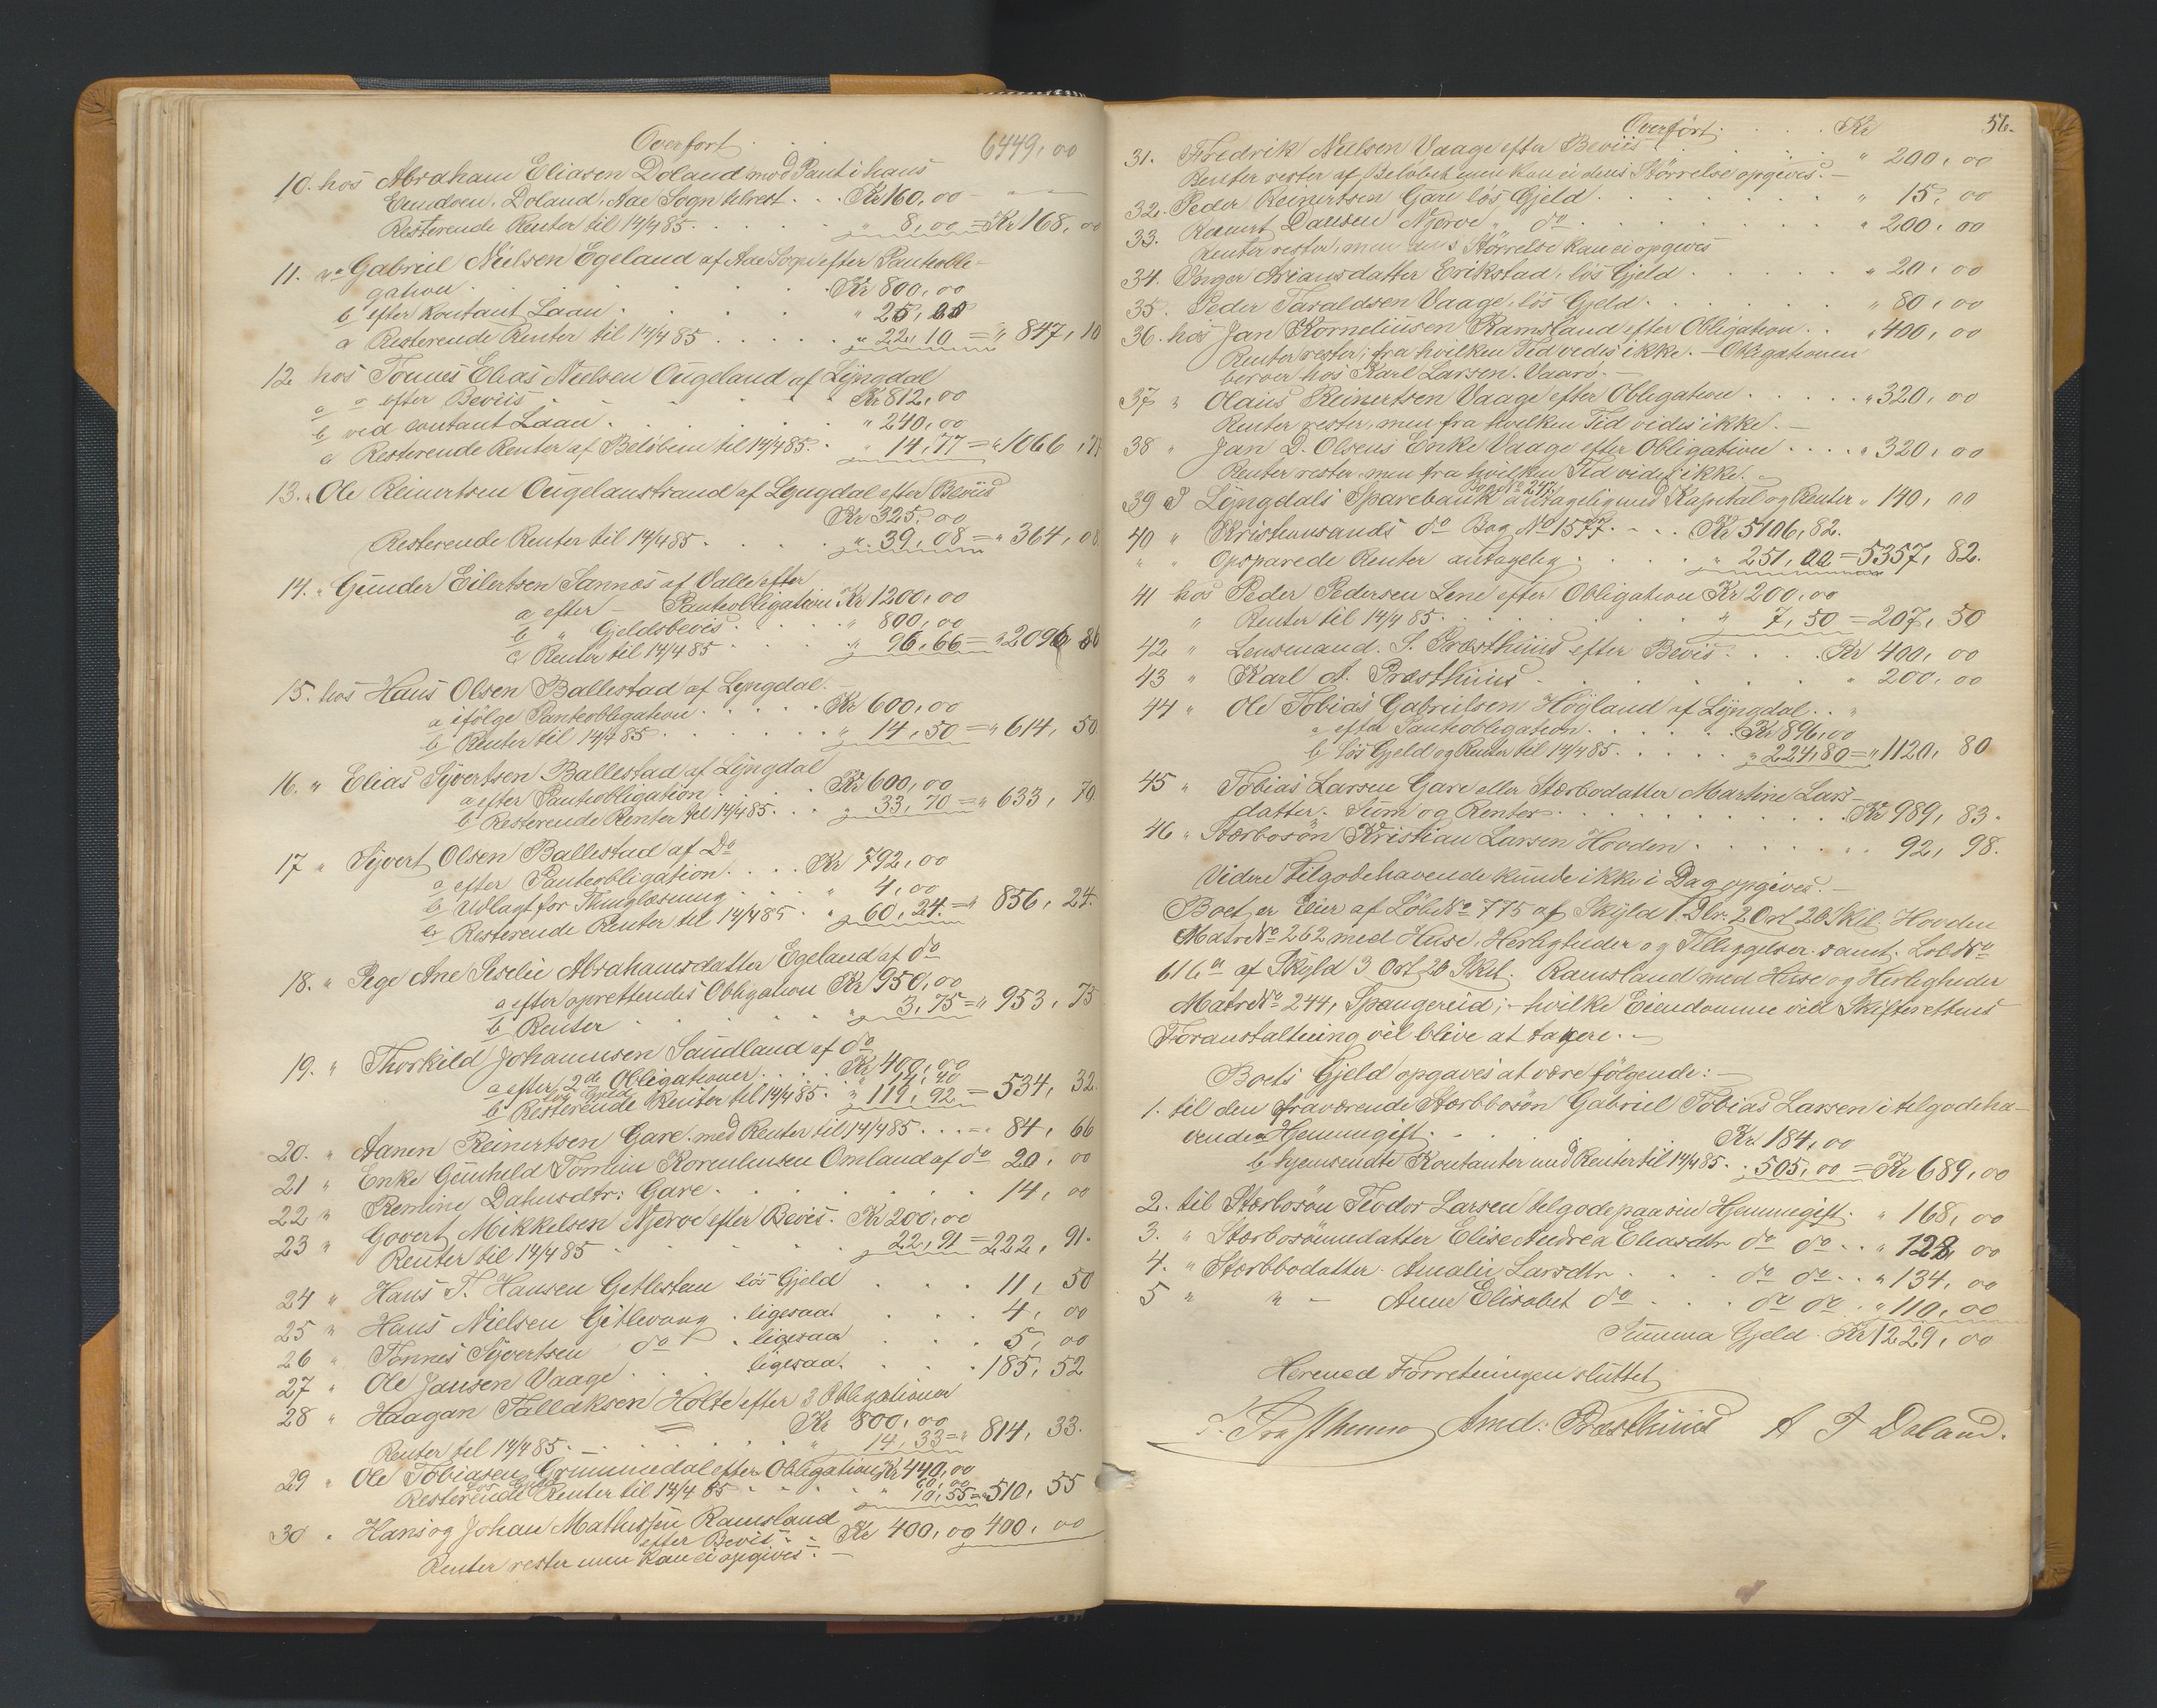 Overført . . . 6449,00
10. hos Abraham Eliasen Doland mod Pant i hans
Eiendom, Doland, Aae Sogn tilrest . . Kr 160,00
Resterende Renter til 14/4 85 . . . . " 8,00 = Kr 168,00
11. " Gabriel Nielsen Egeland af Aae Sogn efter Panteobli-
gation . . . . . Kr 800,00
b efter Kontant Laan . . . . " 25,00
a Resterende Renter til 14/4 85 . . . . " 22,10 = " 847,10
12 hos Tønnes Elias Nielsen Øugeland af Lyngdal
a efter Beviis . . . . Kr 812,00
b ved contant Laan . . . . " 240,00
c Resterende Renter af Beløbene til 14/4 85. " 14,77 = " 1066,77
13. " Ole Reinertsen Øugelanstrand af Lyngdal efter Beviis
Kr 325,00
Resterende Renter til 14/4 85 . . . . " 39,08 = " 364,08
14. " Gunder Eilertsen Sannes af Valle efter
a efter – Panteobligation Kr 1200,00
b " Gjeldsbevis . . . " 800,00
c Renter til 14/4 85 . . . " 96,66 = " 2096,66
15. hos Hans Olsen Ballestad af Lyngdal.
a ifølge Panteobligation . . . . Kr 600,00
b Renter til 14/4 85 . . . . " 14,50 = " 614,50
16. " Elias Syvertsen Ballestad af Lyngdal
a efter Panteobligation . . . Kr 600,00
b Resterende Renter til 14/4 85 . . " 33,70 = " 633,70
17 " Syvert Olsen Ballestad af Do
a efter Panteobligation . . . Kr 792,00
b Udlagt for Thinglæsning . . . " 4,00
c Resterende Renter til 14/4 85 . " 60,24 = " 856,24.
18. " Pige Ane Seselie Abrahamsdatter Egeland af do
a efter oprettendes Obligation Kr 950,00
b Renter . . . . " 3,75 = " 953,75
19. " Thorkild Johannesen Saudland af do
a efter 2de Obligationer . . . Kr 400,00
løs Gjeld " 14,40
b Resterende Renter til 14/4 85 . " 119,92 = 534,32.
20. " Aanen Reinertsen Gare. med Renter til 14/4 85 . . . = " 84,66
21 " Enke Gunhild Tomine Kornelиusen Omland af do 20,00
22 " Remine Datusdtr: Gare . . . . . 14,00
23 " Govert Mikkelsen Njerve efter Bevis. Kr 200,00
Renter til 14/4 85 . . . . 22,91 = 222,91.
24 " Hans T. Hansen Getlestøen løs Gjeld . . . 11,50
25 " Hans Nielsen Gitlevang . ligesaa . . . 4,00
26 " Tønnes Syvertsen do . ligesaa . . . 5,00
27 " Ole Jansen Vaage . . . ligesaa . . . 185,52
28 " Haagan Tallaksen Holte efter 3 Obligationer
Kr 800,00
Renter til 14/4 85 . . . . " 14,33 = " 814,33.
29 " Ole Tobiasen Grummedal efter Obligation Kr 440,00
løs Gjeld 60,00
Resterende Renter til 14/4 85 . . . " 10,55 = " 510,55
30 . Hans og Johan Mathissen Ramsland
efter Bevis . . Kr 400,00 400,00
Renter rester men kan ei opgives. –
Overført: . . . . Kr 56.
31. Fredrik Nielsen Vaage efter Beviis . . . . . " 200,00
Renter rester af Beløbet men kan ei deres Størrelse opgives. –
32. Peder Reinertsen Gare løs Gjeld . . . . . " 15,00
33. Reinert Dansen Njerve " do . . . . . " 200,00
Renter rester, men dens Størrelse kan ei opgives
34. Inger Ariansdatter Erikstad, løs Gjeld . . . . " 20,00
35. Peder Taraldsen Vaage, løs Gjeld . . . . . " 80,00
36. hos Jan Korneliusen Ramsland efter Obligation . . " 400,00
Renter rester; fra hvilken Tid vedes ikke. – Obligationen
beroer hos Karl Larsen. Vaars. –
37 " Olaus Reinertsen Vaage efter Obligation . . . . . " 320,00
Renter rester, men fra hvilken Tid vides ikke. –
38 " Jan D. Olsens Enke Vaage efter Obligation . . . . " 320,00
Renter rester men fra hvilken Tid vides ikke. –
Bog No 247.
39 I Lyngdals Sparebank antagelig med Kapital og Renter " 140,00
40 " Kristiansands do Bog No 1577. . . . Kr 5106,82.
" " Opsparede Renter antagelig . . . " 251,00 = 5357,82.
41 hos Peder Pedersen Lene efter Obligation Kr 200,00
" Renter til 14/4 85 . . . . " 7,50 = 207,50
42 " Lensmand. S. Præsthuus efter Bevis . . . Kr 400,00
43 " Karl A. Præsthuus . . . . . " 200,00
44 " Ole Tobias Gabrielsen Høyland af Lyngdal . . "
a efter Panteobligation . . . . Kr 896,00
b løs Gjeld og Renter til 14/4 85 . . . . " 224,80 = " 1120,80
45 " Tobias Larsen Gare eller Stærbodatter Martine Lars-
datter. Sum og Renter . . . . . . . Kr 989,83.
46 " Stærbosøn Kristian Larsen Hovden . . . . . " 92,98.
Videre Tilgodehavende kunde ikke i Dag opgives. –
Boet er Eier af Løb No 775 af Skyld 1 Dlr. 2 Ort 20 Skil. Hovden
Matr No 262 med Huse, Herligheder og Tilliggelser. samt. Løb No
616 a af Skyld 3 Ort 20 Skil. Ramsland med Huse og Herligheder
Matr No 244, Spangereid; – hvilke Eiendomme ved Skifterettens
Foranstaltning vil blive at taxere. –
Boets Gjeld opgaves at være følgende: –
1. til den fraværende Stærbbosøn Gabriel Tobias Larsen i tilgodeha-
vende a Hjemmegift . . . . Kr. 184,00
b hjemsendte Kontanter med Renter til 14/4 85. . 505,00 = Kr 689,00
2. til Stærbosøn Teodor Larsen tilgode paa sin Hjemmegift . " 168,00
3. " Stærbosønnedatter Elise Andrea Eliasdtr do do . . " 128,00
4. " Stærbbodatter. Amalie Larsdtr . . . do do . . " 134,00
5 " " – Anne Elisabet do . . . do do . " 110,00
Summa Gjeld. Kr 1229,00
Hermed Forretningen sluttet
S. Præsthuus Amd: Præsthuus A J Doland.